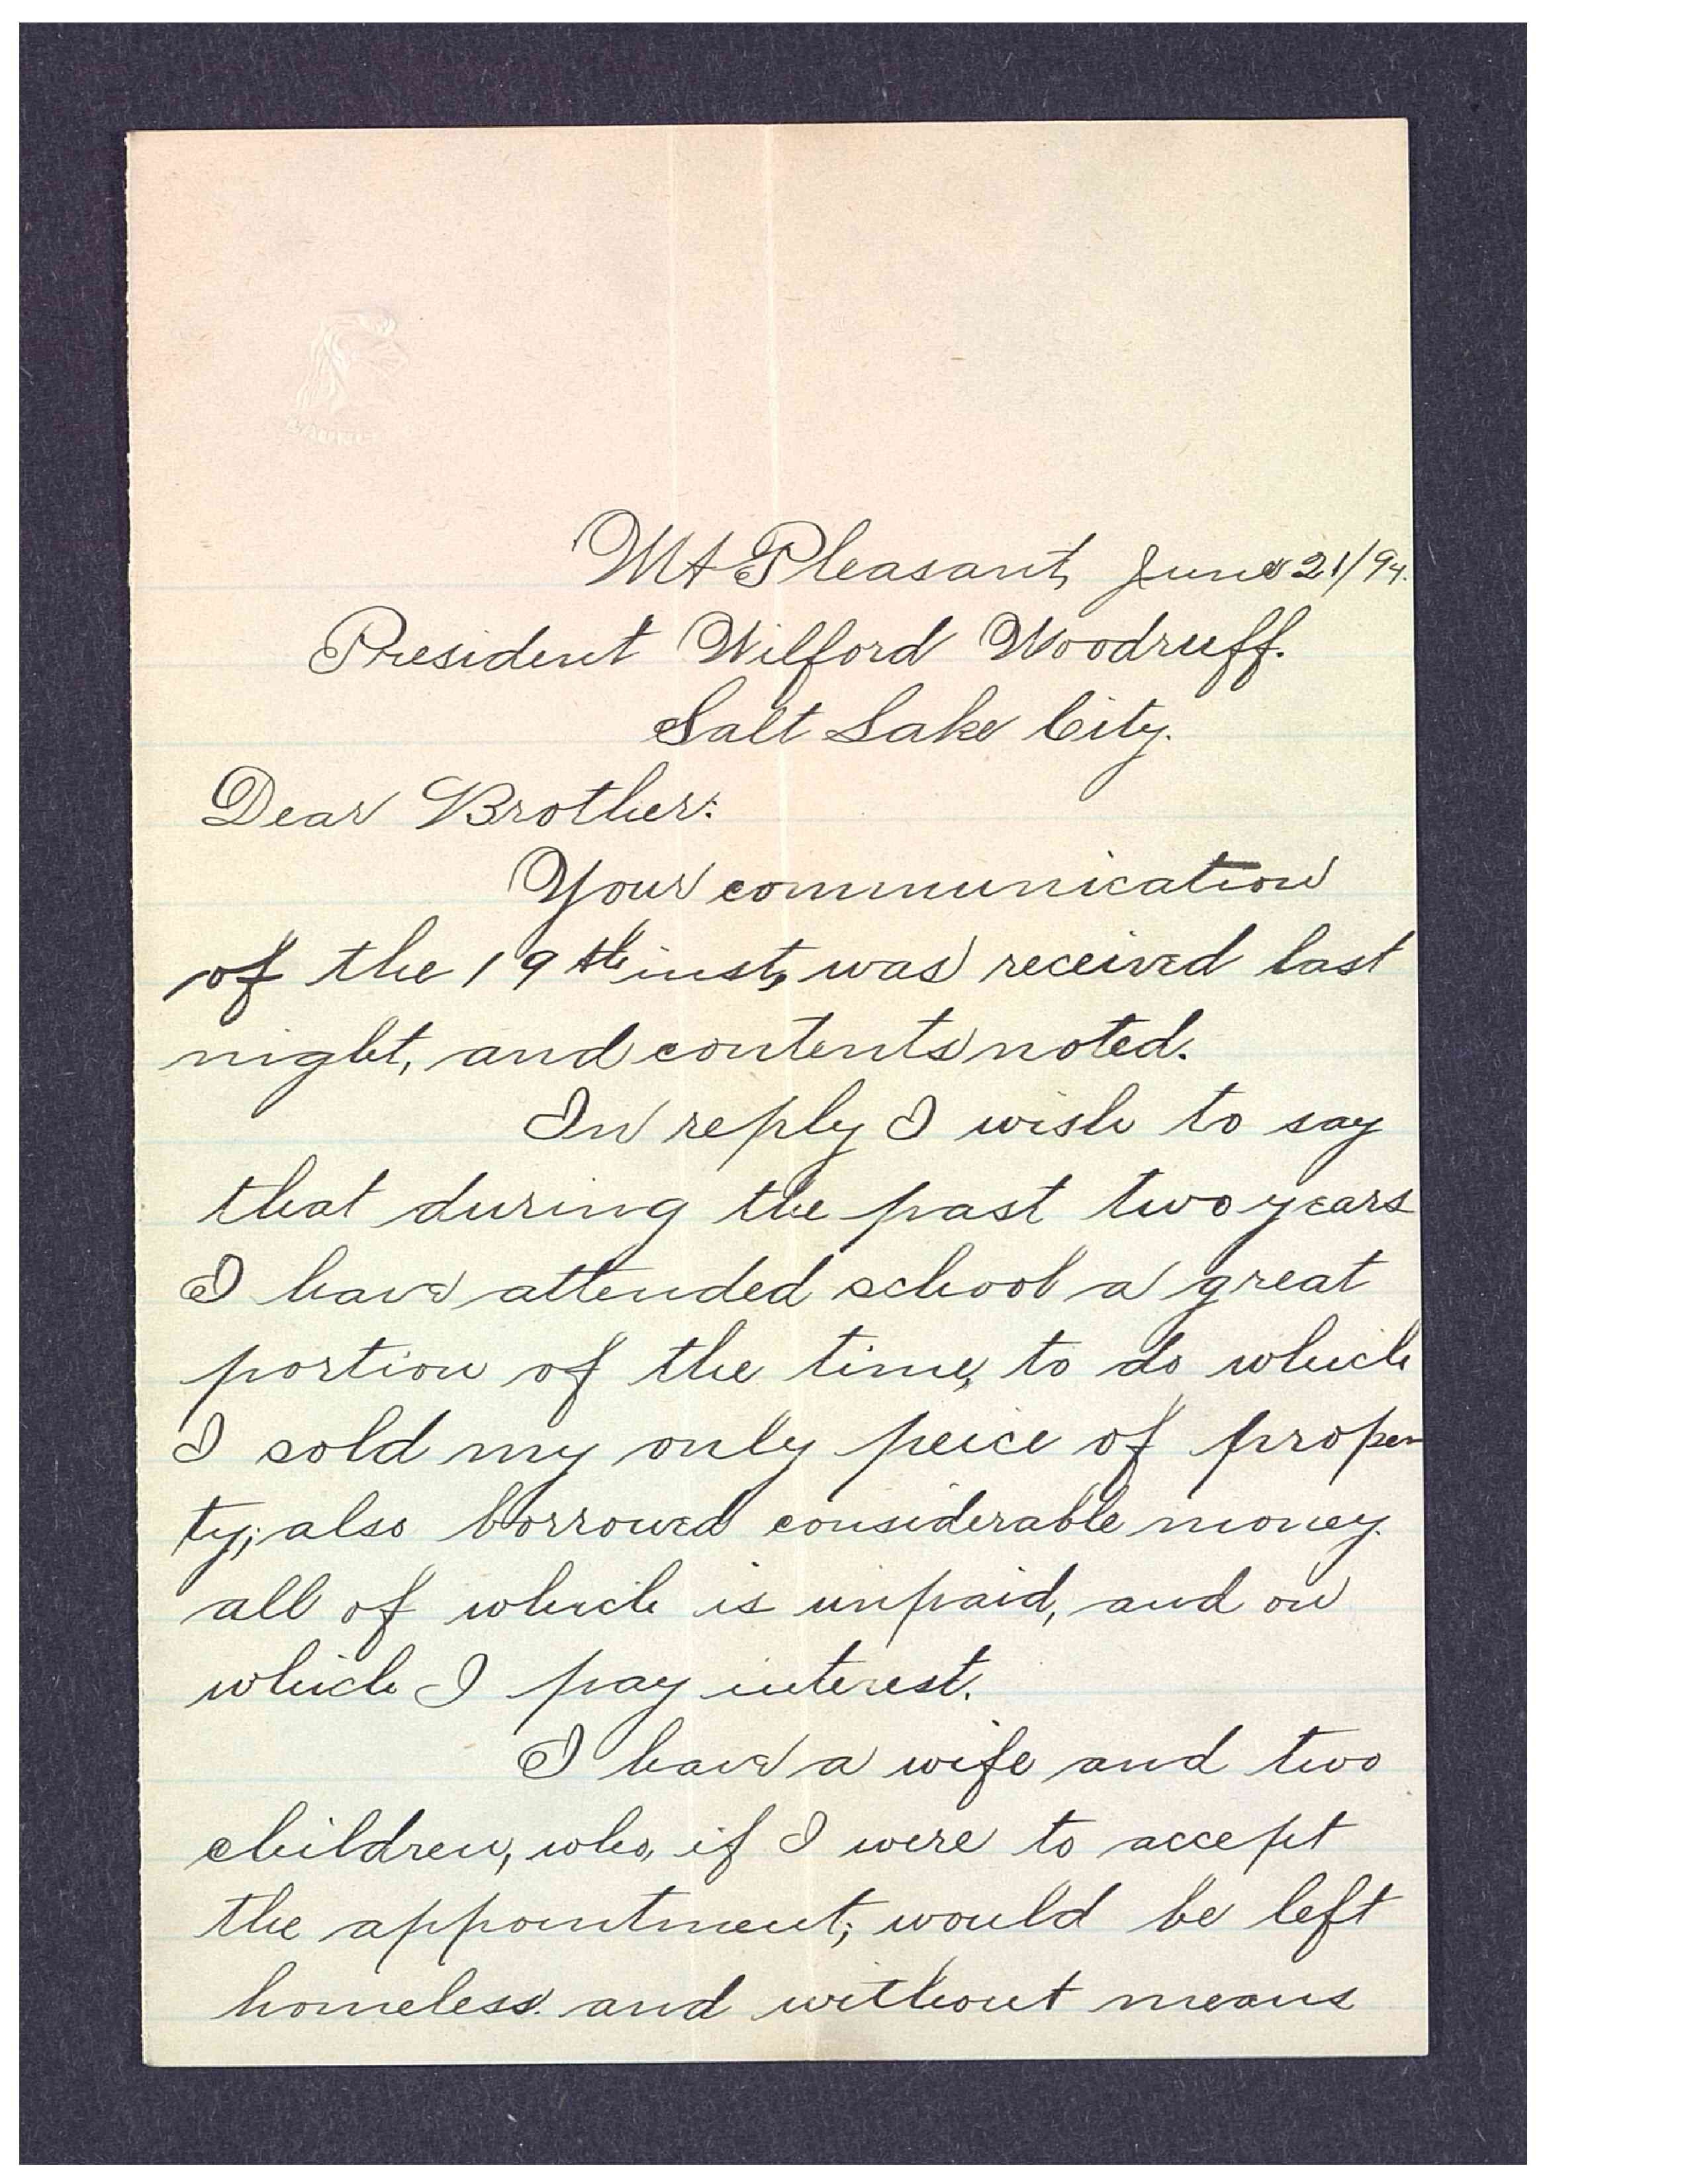 Mt Pleasant, June 21/94.
President Wilford Woodruff.
Salt Lake City.
Dear Brother:
Your communication
of the 19th inst, was received last
night, and contents noted.
In reply I wish to say
that during the past two years
I have attended school a great
portion of the time, to do which
I sold my only peice of proper
ty; also borrowed considerable money.
all of which is unpaid, and on
which I pay interest.
I have a wife and two
children, who, if I were to accept
the appointment; would be left
homeless. and without means